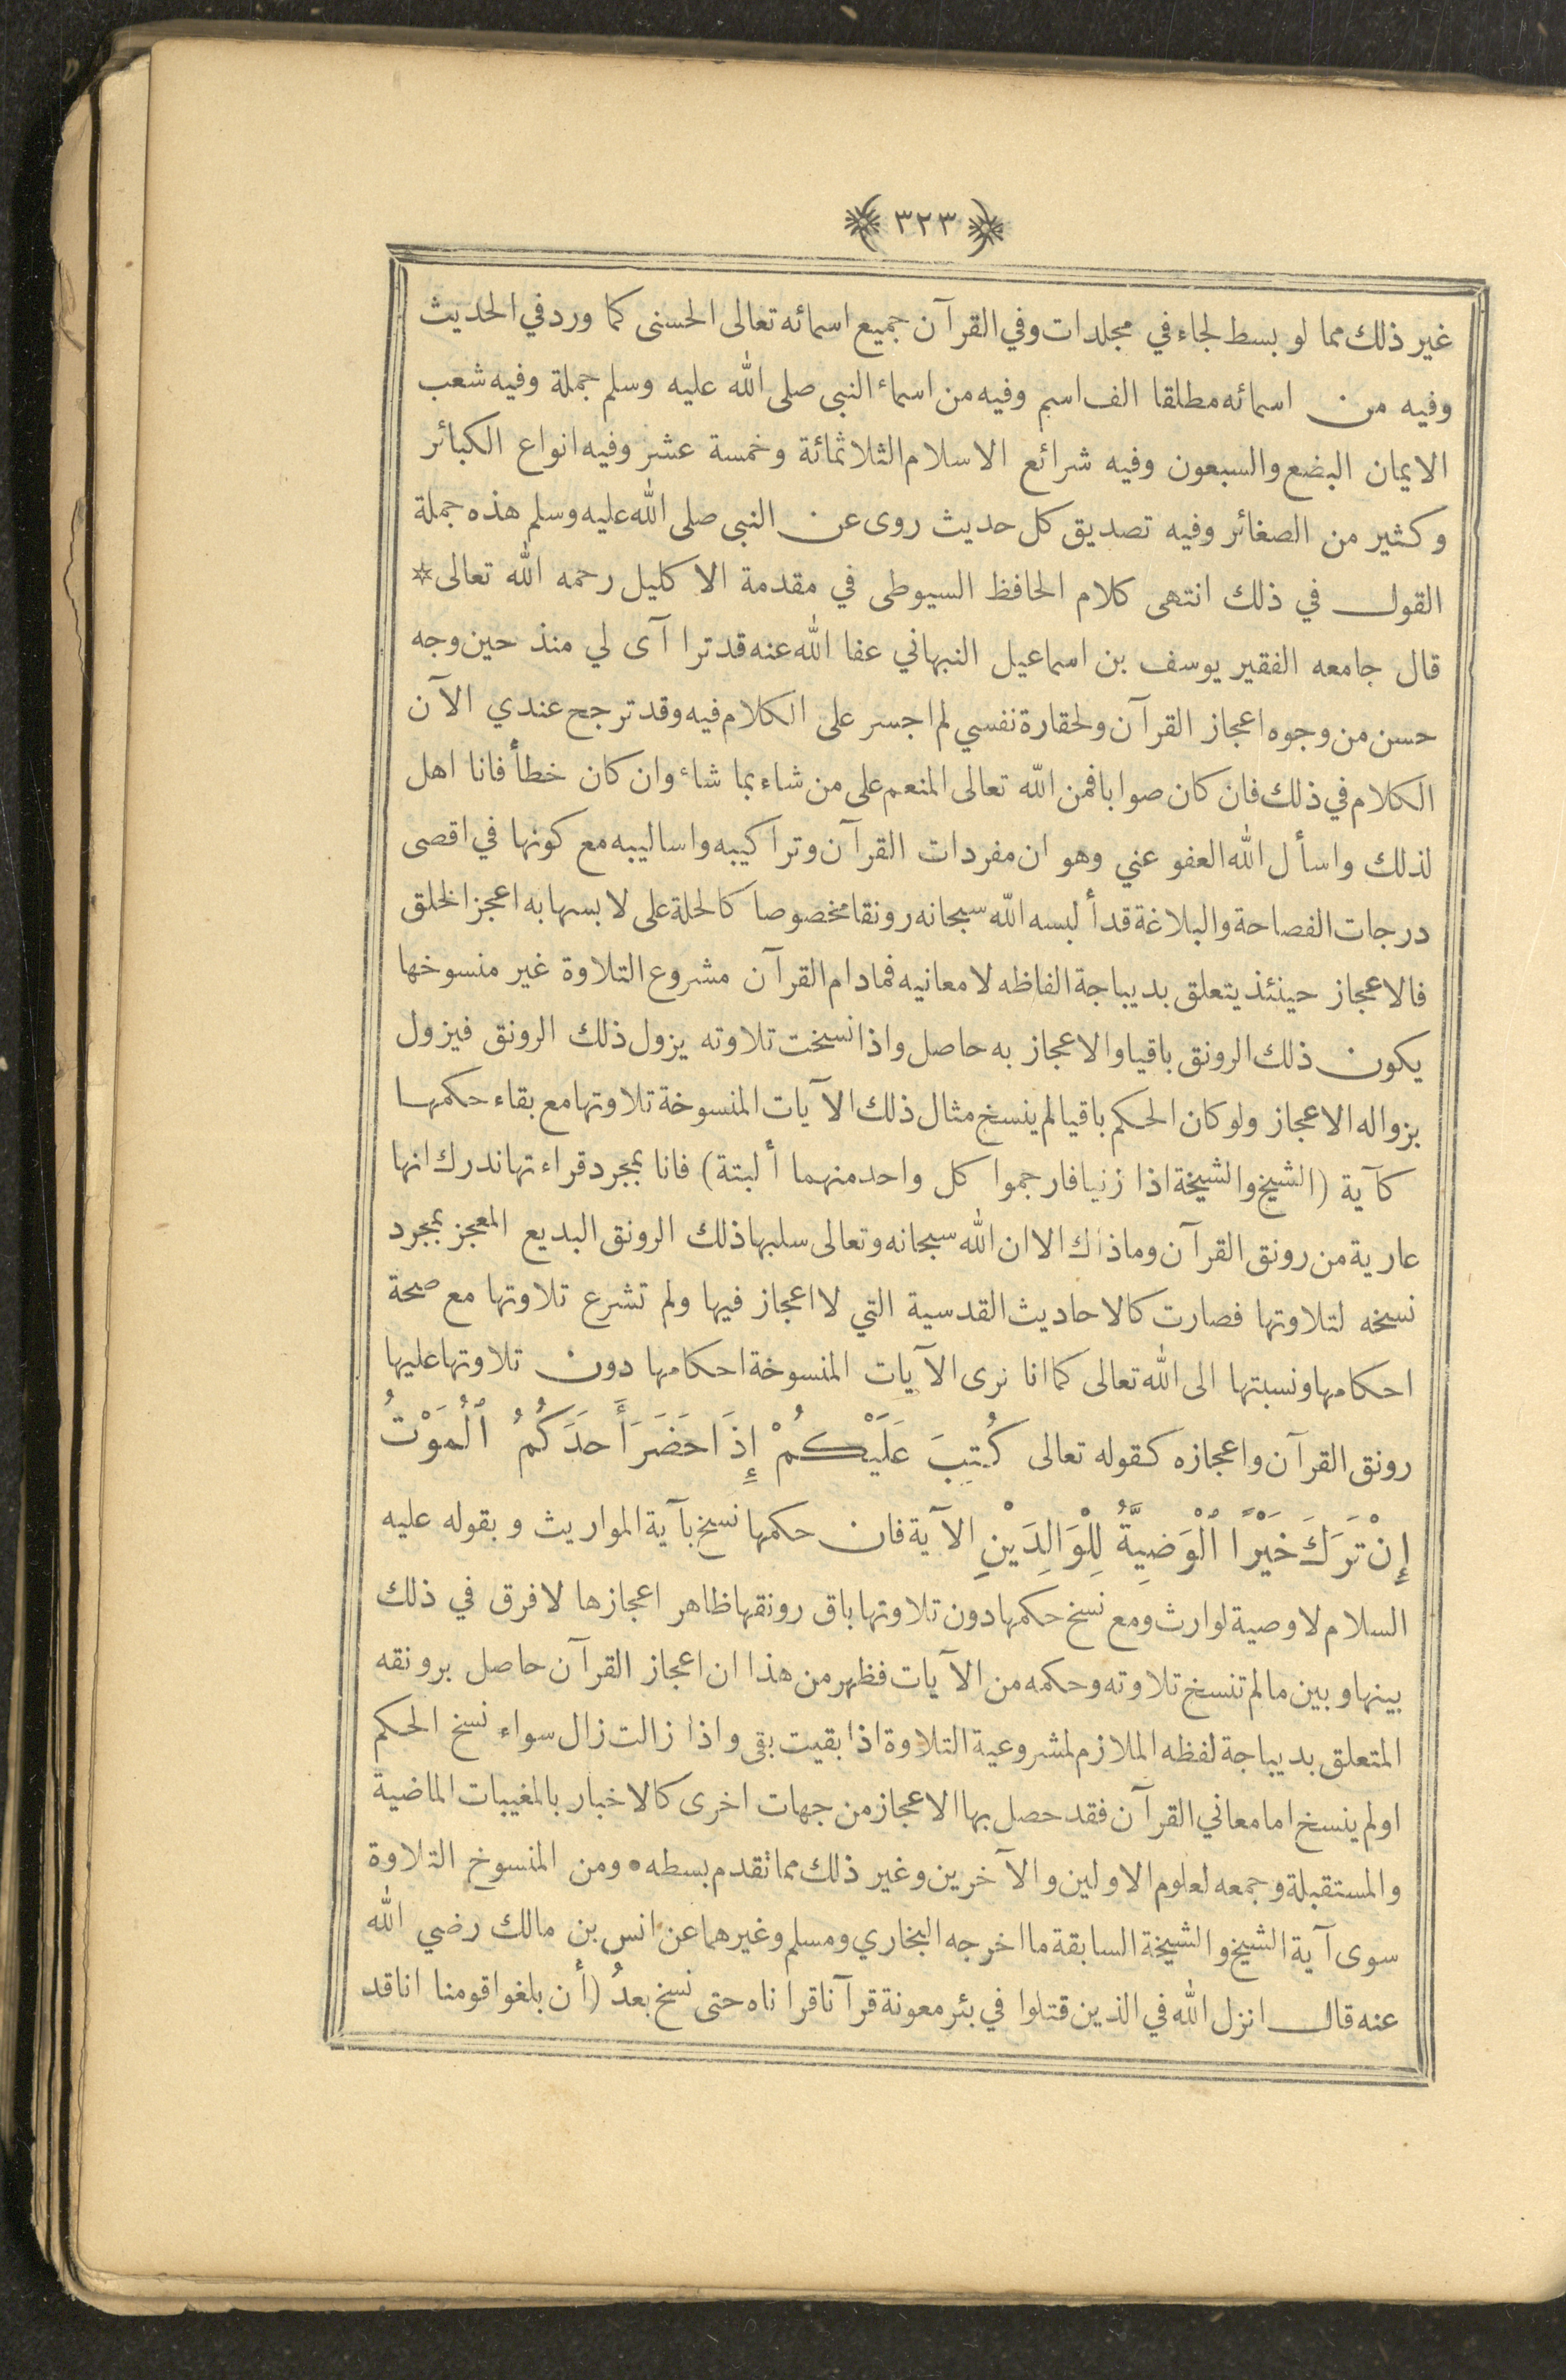 ﴿ ٣٢٣ ﴾
غير ذلك مما لو بسط لجاء في مجلدات وفي القرآن جميع اسمائه تعالى الحسنى كما ورد في الحديث
وفيه من اسمائه مطلقا الف اسم وفيه من اسماء النبى صلى الله عليه وسلم جملة وفيه شعب
الايمان البضع والسبعون وفيه شرائع الاسلام الثلاثمائة وخمسة عشر وفيه انواع الكبائر
وكثير من الصغائر وفيه تصديق كل حديث روى عن النبى صلى الله عليه وسلم هذه جملة
القول في ذلك انتهى كلام الحافظ السيوطى في مقدمة الاكليل رحمه الله تعالى *
قال جامعه الفقير يوسف بن اسماعيل النبهاني عفا الله عنه قد تراآى لي منذ حين وجه
حسن من وجوه اعجاز القرآن ولحقارة نفسي لم اجسر على الكلام فيه وقد ترجح عندي الآن
الكلام في ذلك فان كان صوابا فمن الله تعالى المنعم على من شاء بما شاء وان كان خطأ فانا اهل
لذلك واسأل الله العفو عني وهو ان مفردات القرآن وتراكيبه واساليبه مع كونها في اقصى
درجات الفصاحة والبلاغة قد ألبسه الله سبحانه رونقا مخصوصا كالحلة على لابسها به اعجز الخلق
فالاعجاز حينئذ يتعلق بديباجة الفاظه لا معانيه فمادام القرآن مشروع التلاوة غير منسوخها
يكون ذلك الرونق باقيا والاعجاز به حاصل واذا نسخت تلاوته يزول ذلك الرونق فيزول
بزواله الاعجاز ولو كان الحكم باقيا لم ينسخ مثال ذلك الآيات المنسوخة تلاوتها مع بقاء حكمها
كآية (الشيخ والشيخة اذا زنيا فارجموا كل واحد منهما ألبتة) فانا بمجرد قراءتها ندرك انها
عارية من رونق القرآن وماذاك الا ان الله سبحانه وتعالى سلبها ذلك الرونق البديع المعجز بمجرد
نسخه لتلاوتها فصارت كالاحاديث القدسية التي لا اعجاز فيها ولم تشرع تلاوتها مع صحة
احكامها ونسبتها الى الله تعالى كما انا نرى الآيات المنسوخة احكامها دون تلاوتها عليها
رونق القرآن واعجازه كقوله تعالى كُتِبَ عَلَيْكُمْ إِذَا حَضَرَ أَحَدَكُمُ ٱلْمَوْتُ
إِنْ تَرَكَ خَيْرًا ٱلْوَصِيَّةُ لِلْوَالِدَيْنِ الآية فان حكمها نسخ بآية المواريث وبقوله عليه
السلام لا وصية لوارث ومع نسخ حكمها دون تلاوتها باق رونقها ظاهر اعجازها لا فرق في ذلك
بينها وبين مالم تنسخ تلاوته وحكمه من الآيات فظهر من هذا ان اعجاز القرآن حاصل برونقه
المتعلق بديباجة لفظه الملازم لمشروعية التلاوة اذا بقيت بقى واذا زالت زال سواء نسخ الحكم
اولم ينسخ اما معاني القرآن فقد حصل بها الاعجاز من جهات اخرى كالاخبار بالمغيبات الماضية
والمستقبلة وجمعه لعلوم الاولين والآخرين وغير ذلك مما تقدم بسطه • ومن المنسوخ التلاوة
سوى آية الشيخ والشيخة السابقة ما اخرجه البخاري ومسلم وغيرهما عن انس بن مالك رضي الله
عنه قال انزل الله في الذين قتلوا في بئر معونة قرآنا قراناه حتى نسخ بعدُ (أن بلغوا قومنا انا قد